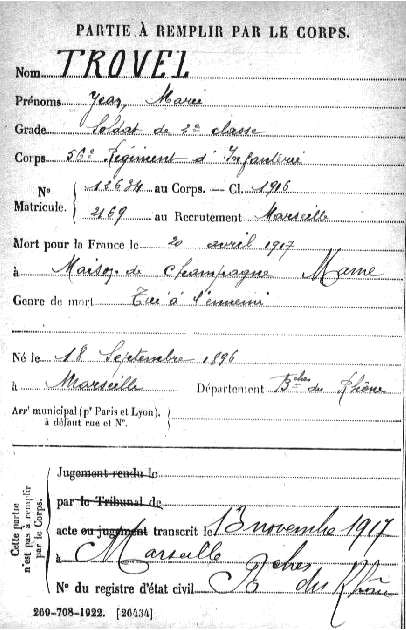 PARTIE À REMPLIR PAR LE CORPS.
Nom TROVEL
Prénoms Jean, Marie
Grade Soldat de 2e classe
Corps 56e Régiment d'Infanterie
N° Matricule. { 13684 au Corps. — Cl. 1916
2169 au Recrutement Marseille
Mort pour la France le 20 avril 1917
à Maison de Champagne Marne
Genre de mort Tué à l'ennemi
Né le 18 Septembre 1896
à Marseille Département Bches du Rhône
Arrt municipal (pr Paris et Lyon), à défaut rue et N°.
Cette partie n'est pas à remplir par le Corps.
Jugement rendu le
par le Tribunal de
acte ou jugement transcrit le 13 novembre 1917
à Marseille
N° du registre d'état civil Bches du Rhône
269-708-1922. [26434]